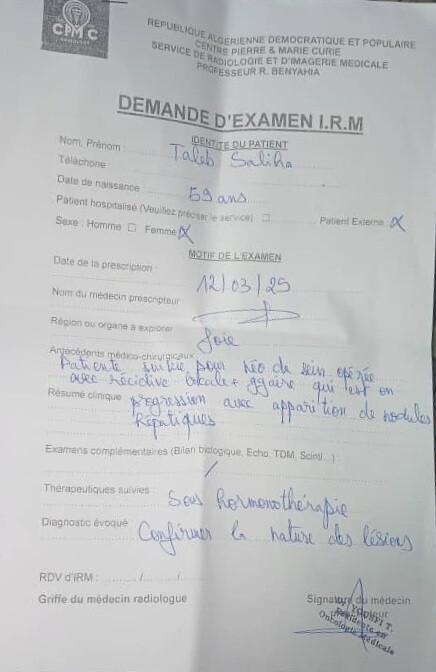 CPMC
REPUBLIQUE ALGERIENNE DEMOCRATIQUE ET POPULAIRE
CENTRE PIERRE & MARIE CURIE
SERVICE DE RADIOLOGIE ET D'IMAGERIE MEDICALE
PROFESSEUR R. BENYAHIA
DEMANDE D'EXAMEN I.R.M
IDENTITE DU PATIENT
Nom, Prénom : Taleb Saliha
Téléphone :
Date de naissance : 59 ans
Patient hospitalisé (Veuillez préciser le service) ☐ Patient Externe X
Sexe : Homme ☐ Femme X
MOTIF DE L'EXAMEN
Date de la prescription : 12/03/25
Nom du médecin prescripteur :
Région ou organe à explorer : foie
Antécédents médico-chirurgicaux :
Patiente suivie pour néo de sein opérée
avec récidive locale + ggaire qui est en
Résumé clinique : progression avec apparition de nodules
Hépatiques
Examens complémentaires (Bilan biologique, Echo, TDM, Scinti...) :
/
Thérapeutiques suivies : Sous hormonothérapie
Diagnostic évoqué : Confirmer la nature des lésions
RDV d'IRM : ....../....../......
Griffe du médecin radiologue
Signature du médecin
Résidente en
Oncologie Médicale